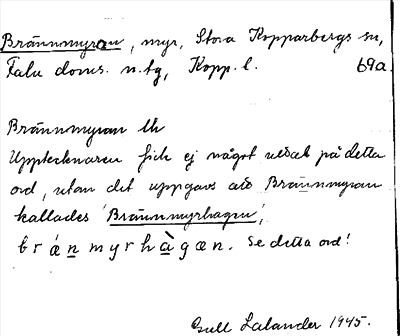 Brännmyran, myr, Stora Kopparbergs sn,
Falu doms. n. tg, Kopp. l. 69a.
Brännmyran th
Upptecknaren fick ej något uttal på detta
ord, utan det uppgavs att Brännmyran
kallades 'Brännmyrhagen',
bræ̀nmyrhàgæn. Se detta ord!
Gull Lalander 1945.